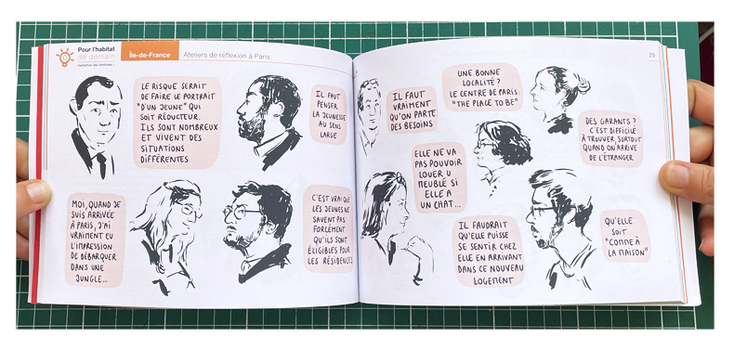 Pour l'habitat
de demain
Île-de-France
Ateliers de réflexion à Paris
LE RISQUE SERAIT
DE FAIRE LE PORTRAIT
"D'UN JEUNE" QUI
SOIT RÉDUCTEUR.
ILS SONT NOMBREUX
ET VIVENT DES
SITUATIONS
DIFFÉRENTES
IL FAUT
PENSER
LA JEUNESSE
AU SENS
LARGE
MOI, QUAND JE
SUIS ARRIVÉE
À PARIS, J'AI
VRAIMENT EU
L'IMPRESSION
DE DÉBARQUER
DANS UNE
JUNGLE...
C'EST VRAI QUE
LES JEUNES NE
SAVENT PAS
FORCÉMENT
QU'ILS SONT
ÉLIGIBLES POUR
LES RÉSIDENCES
25
IL FAUT
VRAIMENT
QU'ON PARTE
DES BESOINS
UNE BONNE
LOCALITÉ ?
LE CENTRE DE PARIS:
"THE PLACE TO BE"
DES GARANTS ?
C'EST DIFFICILE
À TROUVER, SURTOUT
QUAND ON ARRIVE
DE L'ÉTRANGER
ELLE NE VA
PAS POUVOIR
LOUER U
MEUBLÉ SI
ELLE A
UN CHAT...
IL FAUDRAIT
QU'ELLE PUISSE
SE SENTIR CHEZ
ELLE EN ARRIVANT
DANS CE NOUVEAU
LOGEMENT
QU'ELLE
SOIT
"COMME À
LA MAISON"